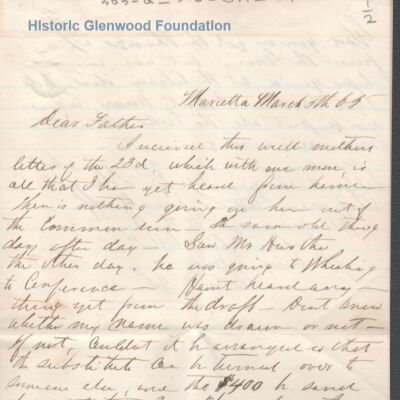 Historic Glenwood Foundation
1/2
Marietta March 5th 65
Dear Father
I received this week mothers
letter of the 23d, which with one more, is
all that I have yet heard from home.
There is nothing going on here out of
the Common run - the same old thing
day after day - Saw Mr
the other day - he was going to Wheeling
to Conference - Havnt heard any-
thing yet from the draft - Dont know
whether my name was drawn or not -
If not, couldnt it be arranged so that
the substitute can be turned over to
someone else, and the $400 be saved